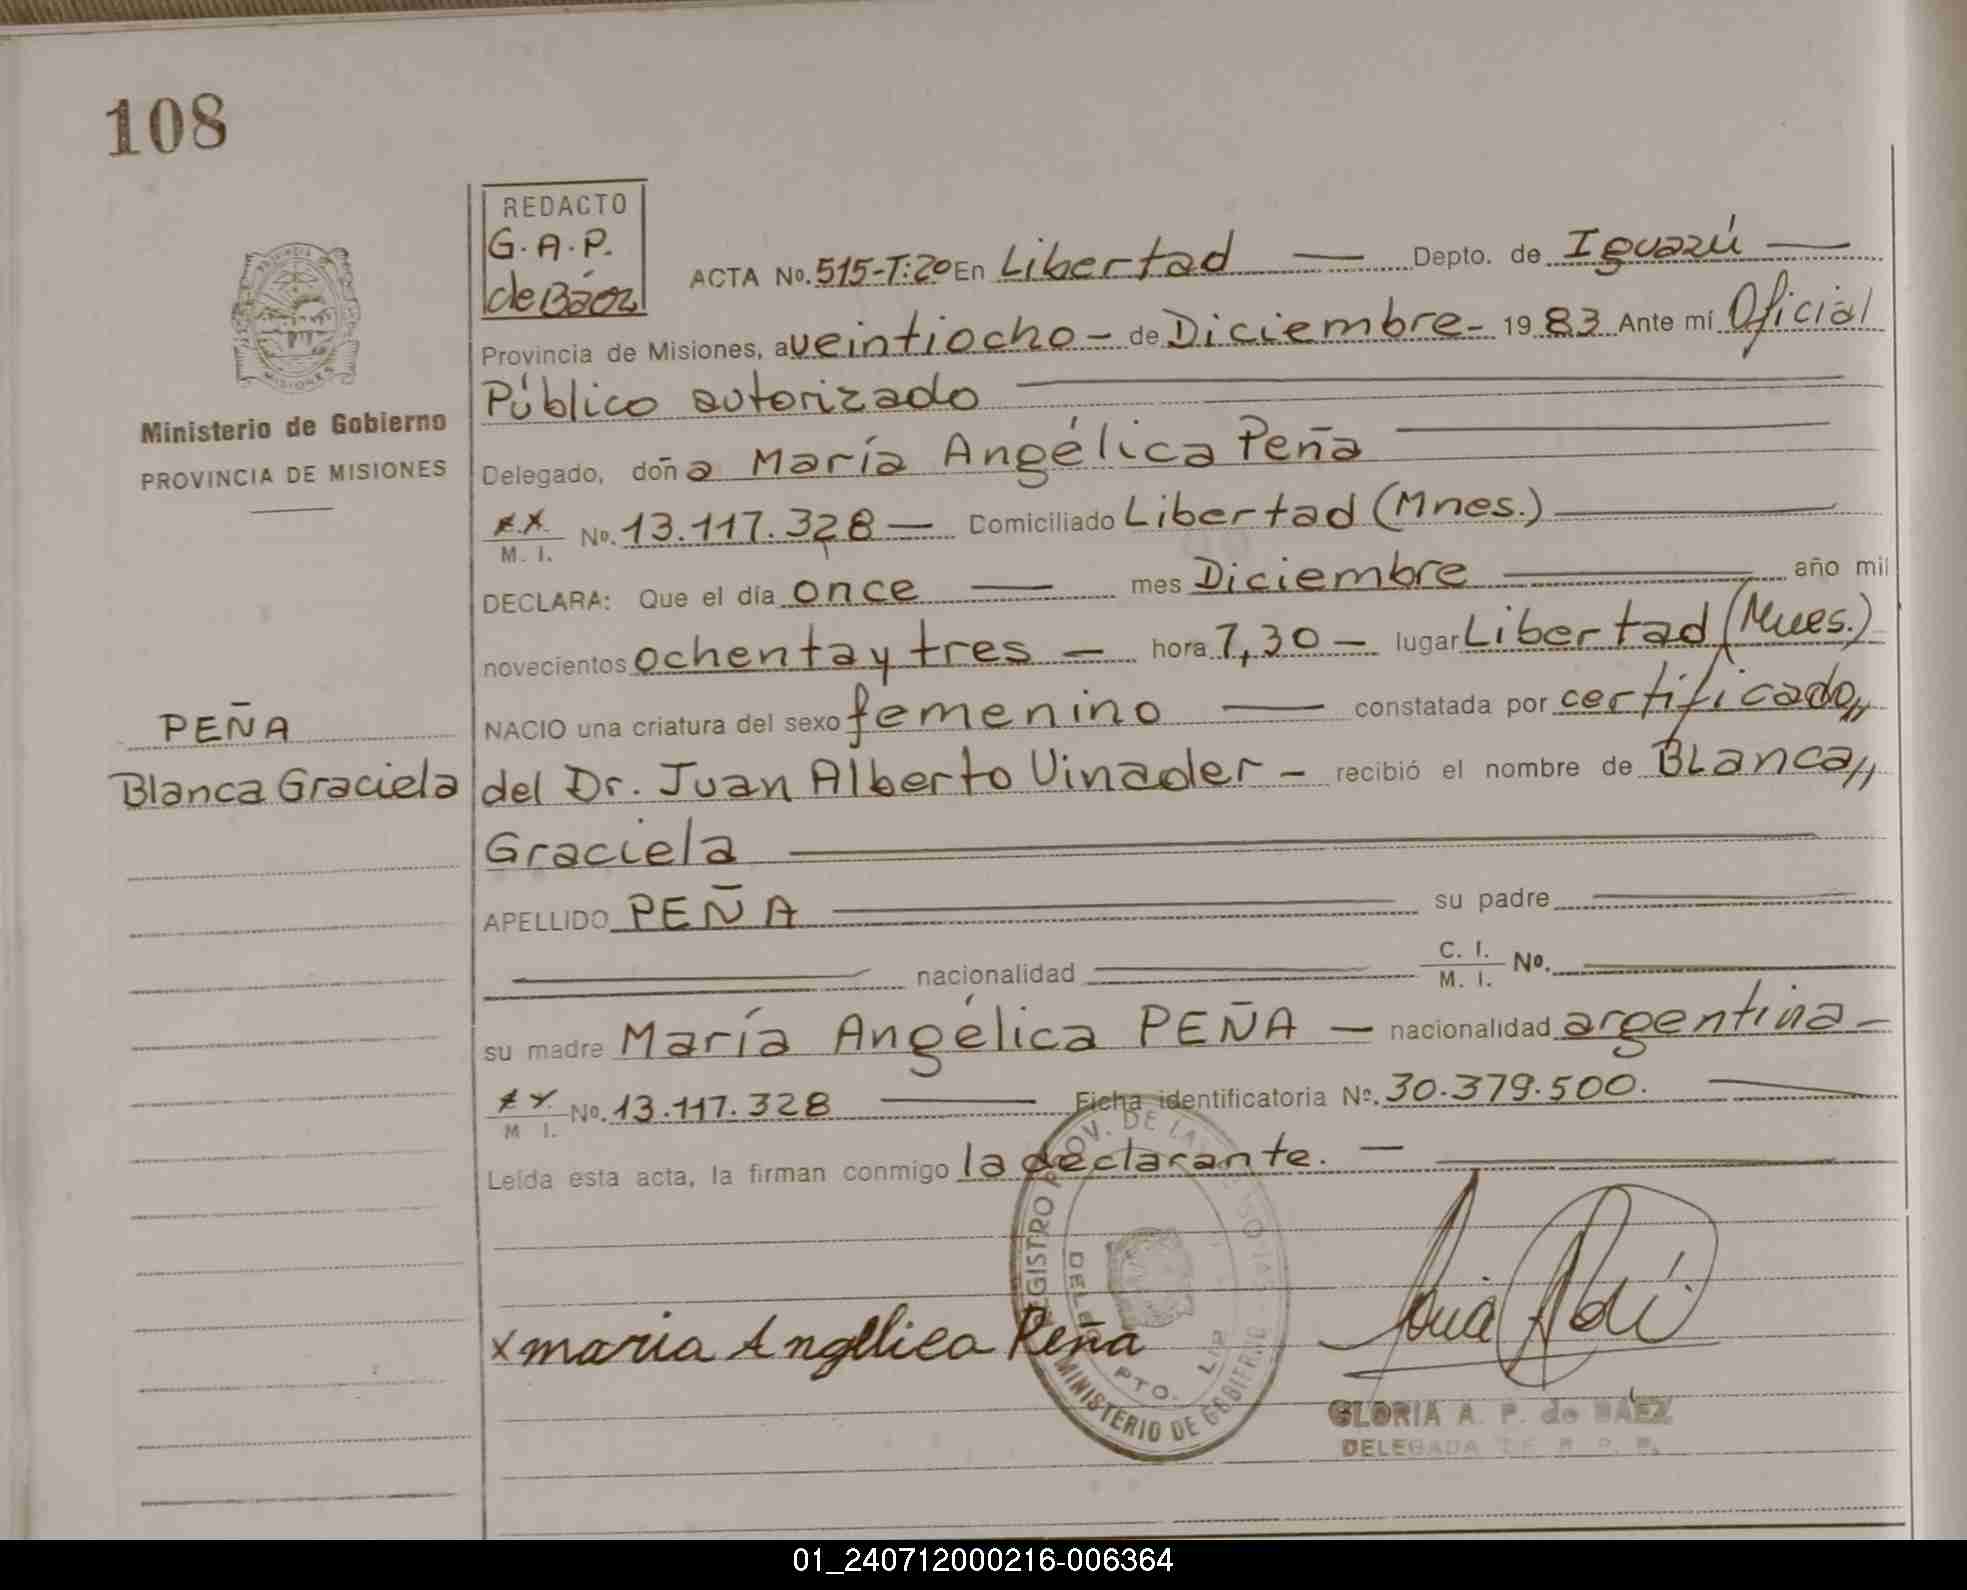 108
REDACTO
G.A.P.
de Báez
ACTA No. 515-T:20 En Libertad — Depto. de Iguazú —
Provincia de Misiones, a veintiocho - de Diciembre - 19 83 Ante mí Oficial
Público autorizado
Ministerio de Gobierno
PROVINCIA DE MISIONES
Delegado, doña María Angélica Peña
M. I. No. 13.117.328 — Domiciliado Libertad (Mnes.)
DECLARA: Que el día once — mes Diciembre — año mil
novecientos ochenta y tres — hora 7,30 — lugar Libertad (Mnes.)
NACIO una criatura del sexo femenino — constatada por certificado,,
PEÑA
Blanca Graciela
del Dr. Juan Alberto Vinader - recibió el nombre de Blanca,,
Graciela
APELLIDO PEÑA su padre
nacionalidad C. I. M. I. No.
su madre María Angélica PEÑA — nacionalidad argentina -
M I. No. 13.117.328 — Ficha identificatoria No. 30.379.500.
Leída esta acta, la firman conmigo la declarante. —
x maria Angelica Peña
REGISTRO PROV. DE LAS
MINISTERIO DE GOBIERNO
PTO.
GLORIA A. P. de BÁEZ
DELEGADA
PROVINCIA
MISIONES
01_240712000216-006364